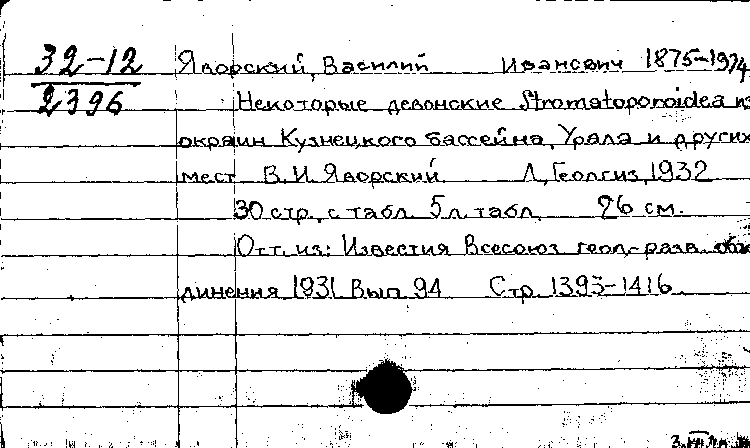 32-12
2396
Яворский, Василий Иванович 1875-1974
Некоторые девонские Stromatoporoidea из
окраин Кузнецкого бассейна, Урала и других
мест В.И. Яворский Л, Геолгиз, 1932
30 стр., с табл. 5 л. табл. 26 см.
Отт. из: Известия Всесоюз геол.-разв. объе
динения 1931 Вып 94 Стр. 1393-1416